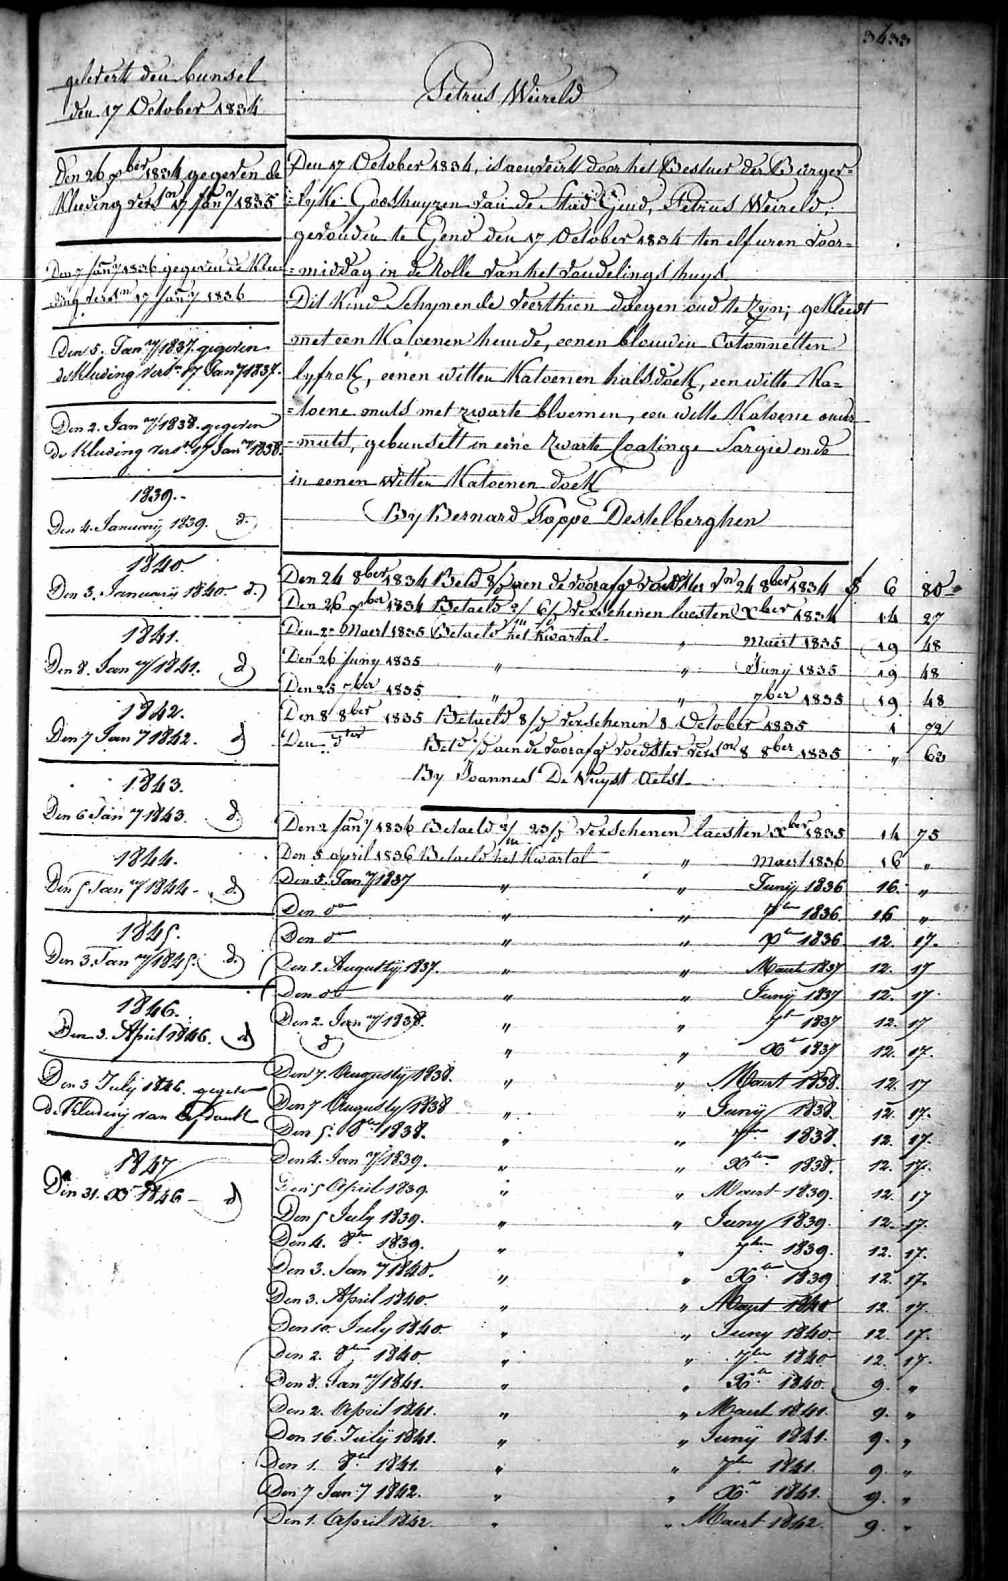 3433
gelevert den bunsel
den 17 October 1834
Den 26 9ber 1834 gegeven de
Kleeding versn 17 Jany 1835
Den 7 Jany 1836 gegeven de Klee
ding versn 17 Jany 1836
Den 5. Jany 1837. gegeven
de Kleeding versn. 17 Jany 1837.
Den 2. Jany 1838. gegeven
de Kleeding versn. 17 Jany 1838.
1839.-
Den 4. January 1839. d.
1840
Den 3. January 1840. d.
1841.
Den 8. Jany 1841. d
1842.
Den 7 Jany 1842. d
1843.
Den 6 Jany 1843. d.
1844.
Den 5 Jany 1844. d
1845.
Den 3. Jany 1845. d.
1846.
Den 3. April 1846. d
Den 3 July 1846. gegeven
de Kleeding van
1847
Den 31. Xb 1846 - d
Petrus Weireld
Den 17 October 1834, is aenveird door het Bestuer der Burger=
=lyke Godshuyzen van de Stad Gend, Petrus Weireld,
gevonden te Gend den 17 October 1834 ten elf uren voor=
=middag in de Rolle van het vondelings huys
Dit Kind schynende veerthien daegen oud te zyn; gekleedt
met een Katoenen hemde, eenen blouwen Cotonnetten
lyfrok, eenen witten Katoenen halsdoek, een witte Ka=
=toene muts met zwarte bloemen, een witte Katoene onder
=muts, gebunselt in eene zwarte Coatinge Sargie ende
in eenen Witten Katoenen doek
By Bernard Poppe Destelberghen
Den 24 8ber 1834 Beld 8/ aen de voorafg voedster vn 24 8ber 1834 6 80
Den 26 9ber 1834 Betaeld 2/m 6/ verschenen laesten Xber 1834 14 27
Den 2 Maert 1835 Betaeld het Kwartal " Maert 1835 19 48
Den 26 Juny 1835 " " Juny 1835 19 48
Den 25 7ber 1835 " " 7ber 1835 19 48
Den 8 8ber 1835 Betaeld 8/ verschenen 8 October 1835 1 72
Den Betd aen de voorafg voedster versn 8 8ber 1835 " 63
By Joannes De Nuyst Aelst
Den 2 Jany 1836 Betaeld 2/m 23/ verschenen laesten Xber 1835 14 75
Den 5 april 1836 Betaeld het Kwartal " Maert 1836 16 "
Den 5. Jany 1837 " " Juny 1836 16. "
Den do " " 7bre 1836 16 "
Den do " " Xbre 1836 12. 17.
Den 1. Augusty 1837. " " Maert 1837 12. 17
Den do " " Juny 1837 12. 17.
Den 2. Jany 1838. " " 7bre 1837 12. 17
d " " Xbre 1837 12. 17.
Den 7. Augusty 1838. " " Maert 1838. 12. 17
Den 7 Augusty 1838 " " Juny 1838. 12. 17.
Den 5. 8bre 1838. " " 7bre 1838. 12. 17.
Den 4. Jany 1839. " " Xbre 1838. 12. 17.
Den 5 April 1839. " " Maert 1839. 12. 17
Den 5 July 1839. " " Juny 1839. 12. 17.
Den 4. 8bre 1839. " " 7bre 1839. 12. 17.
Den 3. Jany 1840. " " Xbre 1839 12. 17.
Den 3. April 1840. " " Maert 1840 12. 17.
Den 10. July 1840. " " Juny 1840. 12 17.
Den 2. 8bre 1840. " " 7bre 1840 12. 17.
Den 8. Jany 1841. " " Xbre 1840. 9. "
Den 2. April 1841. " " Maert 1841. 9. "
Den 16. July 1841. " " Juny 1841. 9. "
Den 1. 8bre 1841. " " 7bre 1841. 9. "
Den 7 Jany 1842. " " Xbre 1841. 9. "
Den 1. April 1842. " " Maert 1842. 9. "